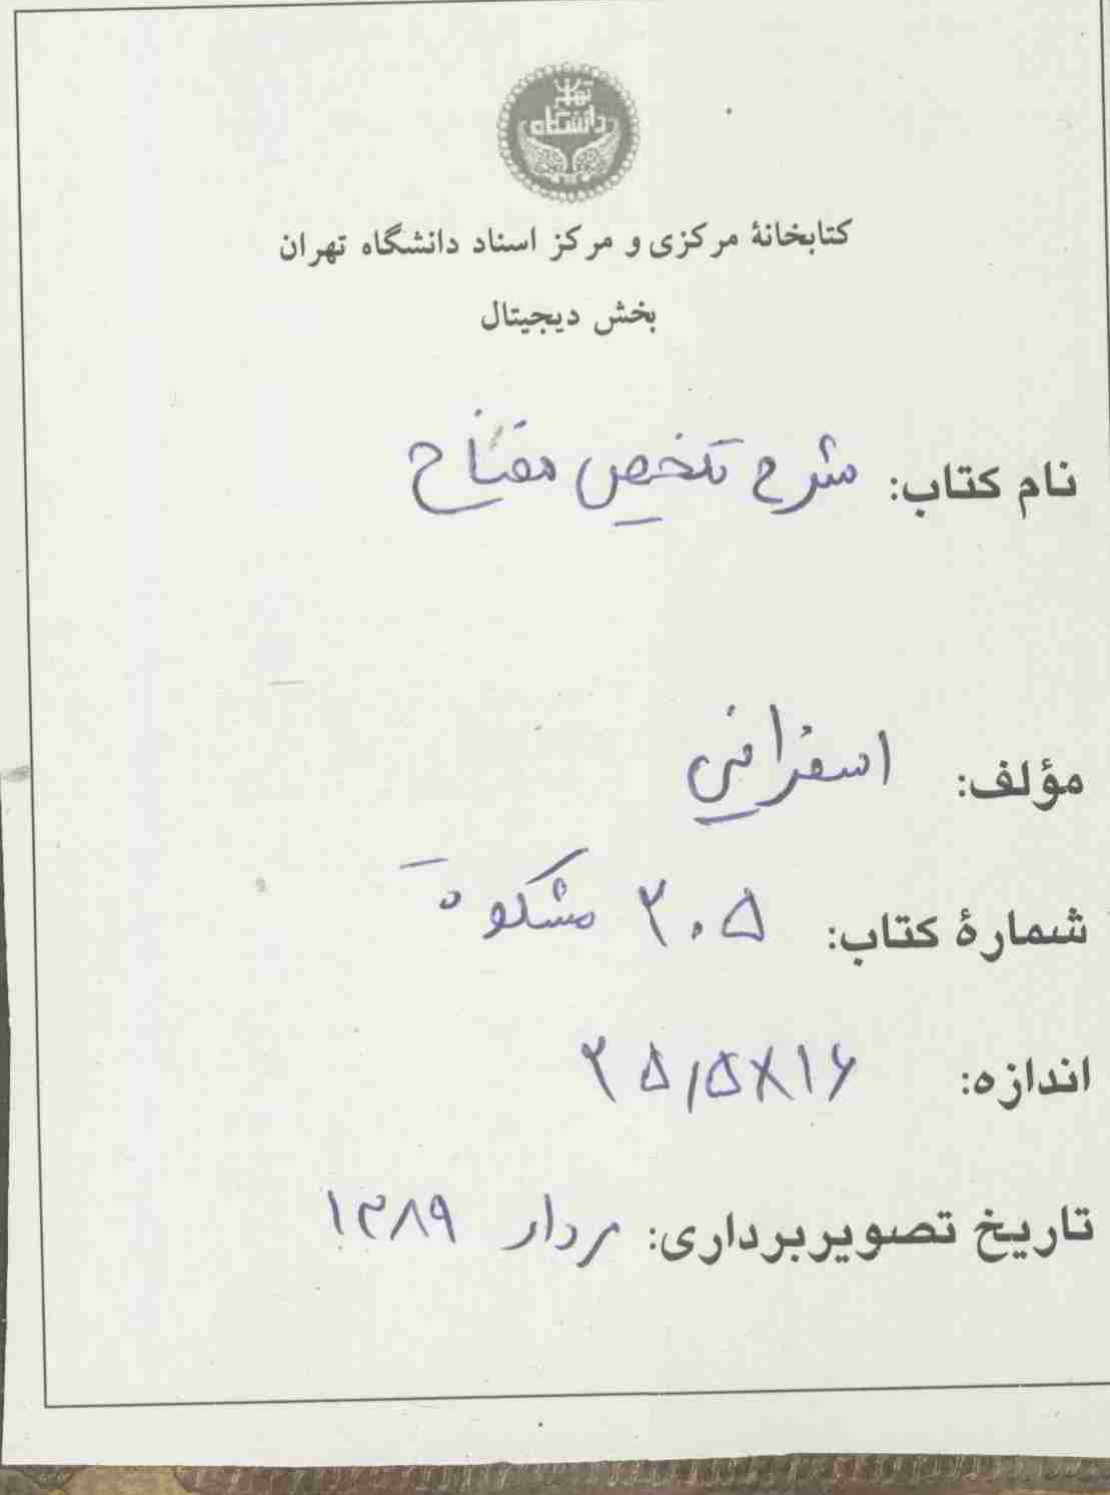 دانشگاه تهران
کتابخانهٔ مرکزی و مرکز اسناد دانشگاه تهران
بخش دیجیتال
نام کتاب: شرح تلخیص مفتاح
مؤلف: اسفراینی
شمارهٔ کتاب: ۲۰۵ مشکوة
اندازه: ۲۵٫۵×۱۶
تاریخ تصویربرداری: مرداد ۱۳۸۹